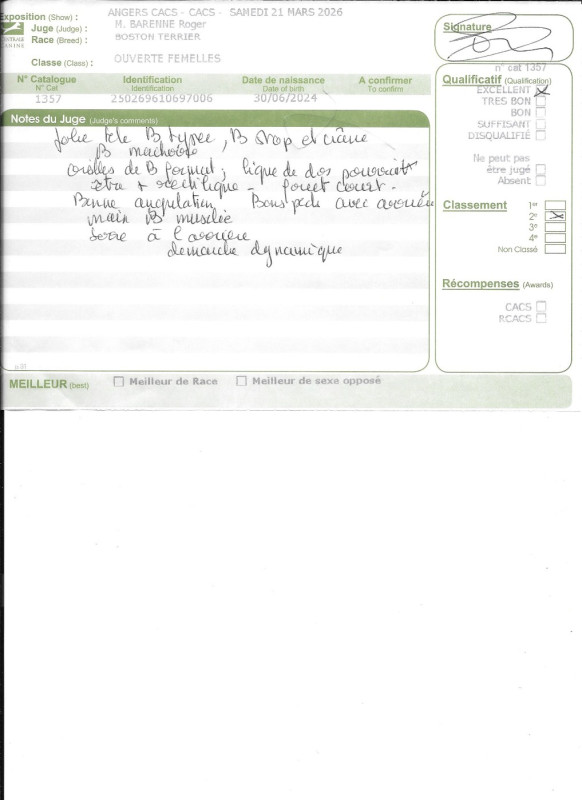 Exposition (Show) : ANGERS CACS - CACS - SAMEDI 21 MARS 2026
Juge (Judge) : M. BARENNE Roger
Race (Breed) : BOSTON TERRIER
Classe (Class) : OUVERTE FEMELLES
Signature
N° Catalogue Identification Date de naissance A confirmer
N° Cat Identification Date of birth To confirm
1357 250269610697006 30/06/2024
n° cat 1357
Qualificatif (Qualification)
EXCELLENT
TRES BON
BON
SUFFISANT
DISQUALIFIÉ
Ne peut pas
être jugé
Absent
Notes du Juge (Judge's comments)
Jolie tête B typée, B stop et crâne
B machoire
oreilles de B format, ligne de dos pouvant
être + rectiligne - fouet court -
Bonne angulation Bons pieds avec
main B musclée
serré à l'arrière
démarche dynamique
Classement
1er
2e
3e
4e
Non Classé
Récompenses (Awards)
CACS
RCACS
MEILLEUR (best) Meilleur de Race Meilleur de sexe opposé